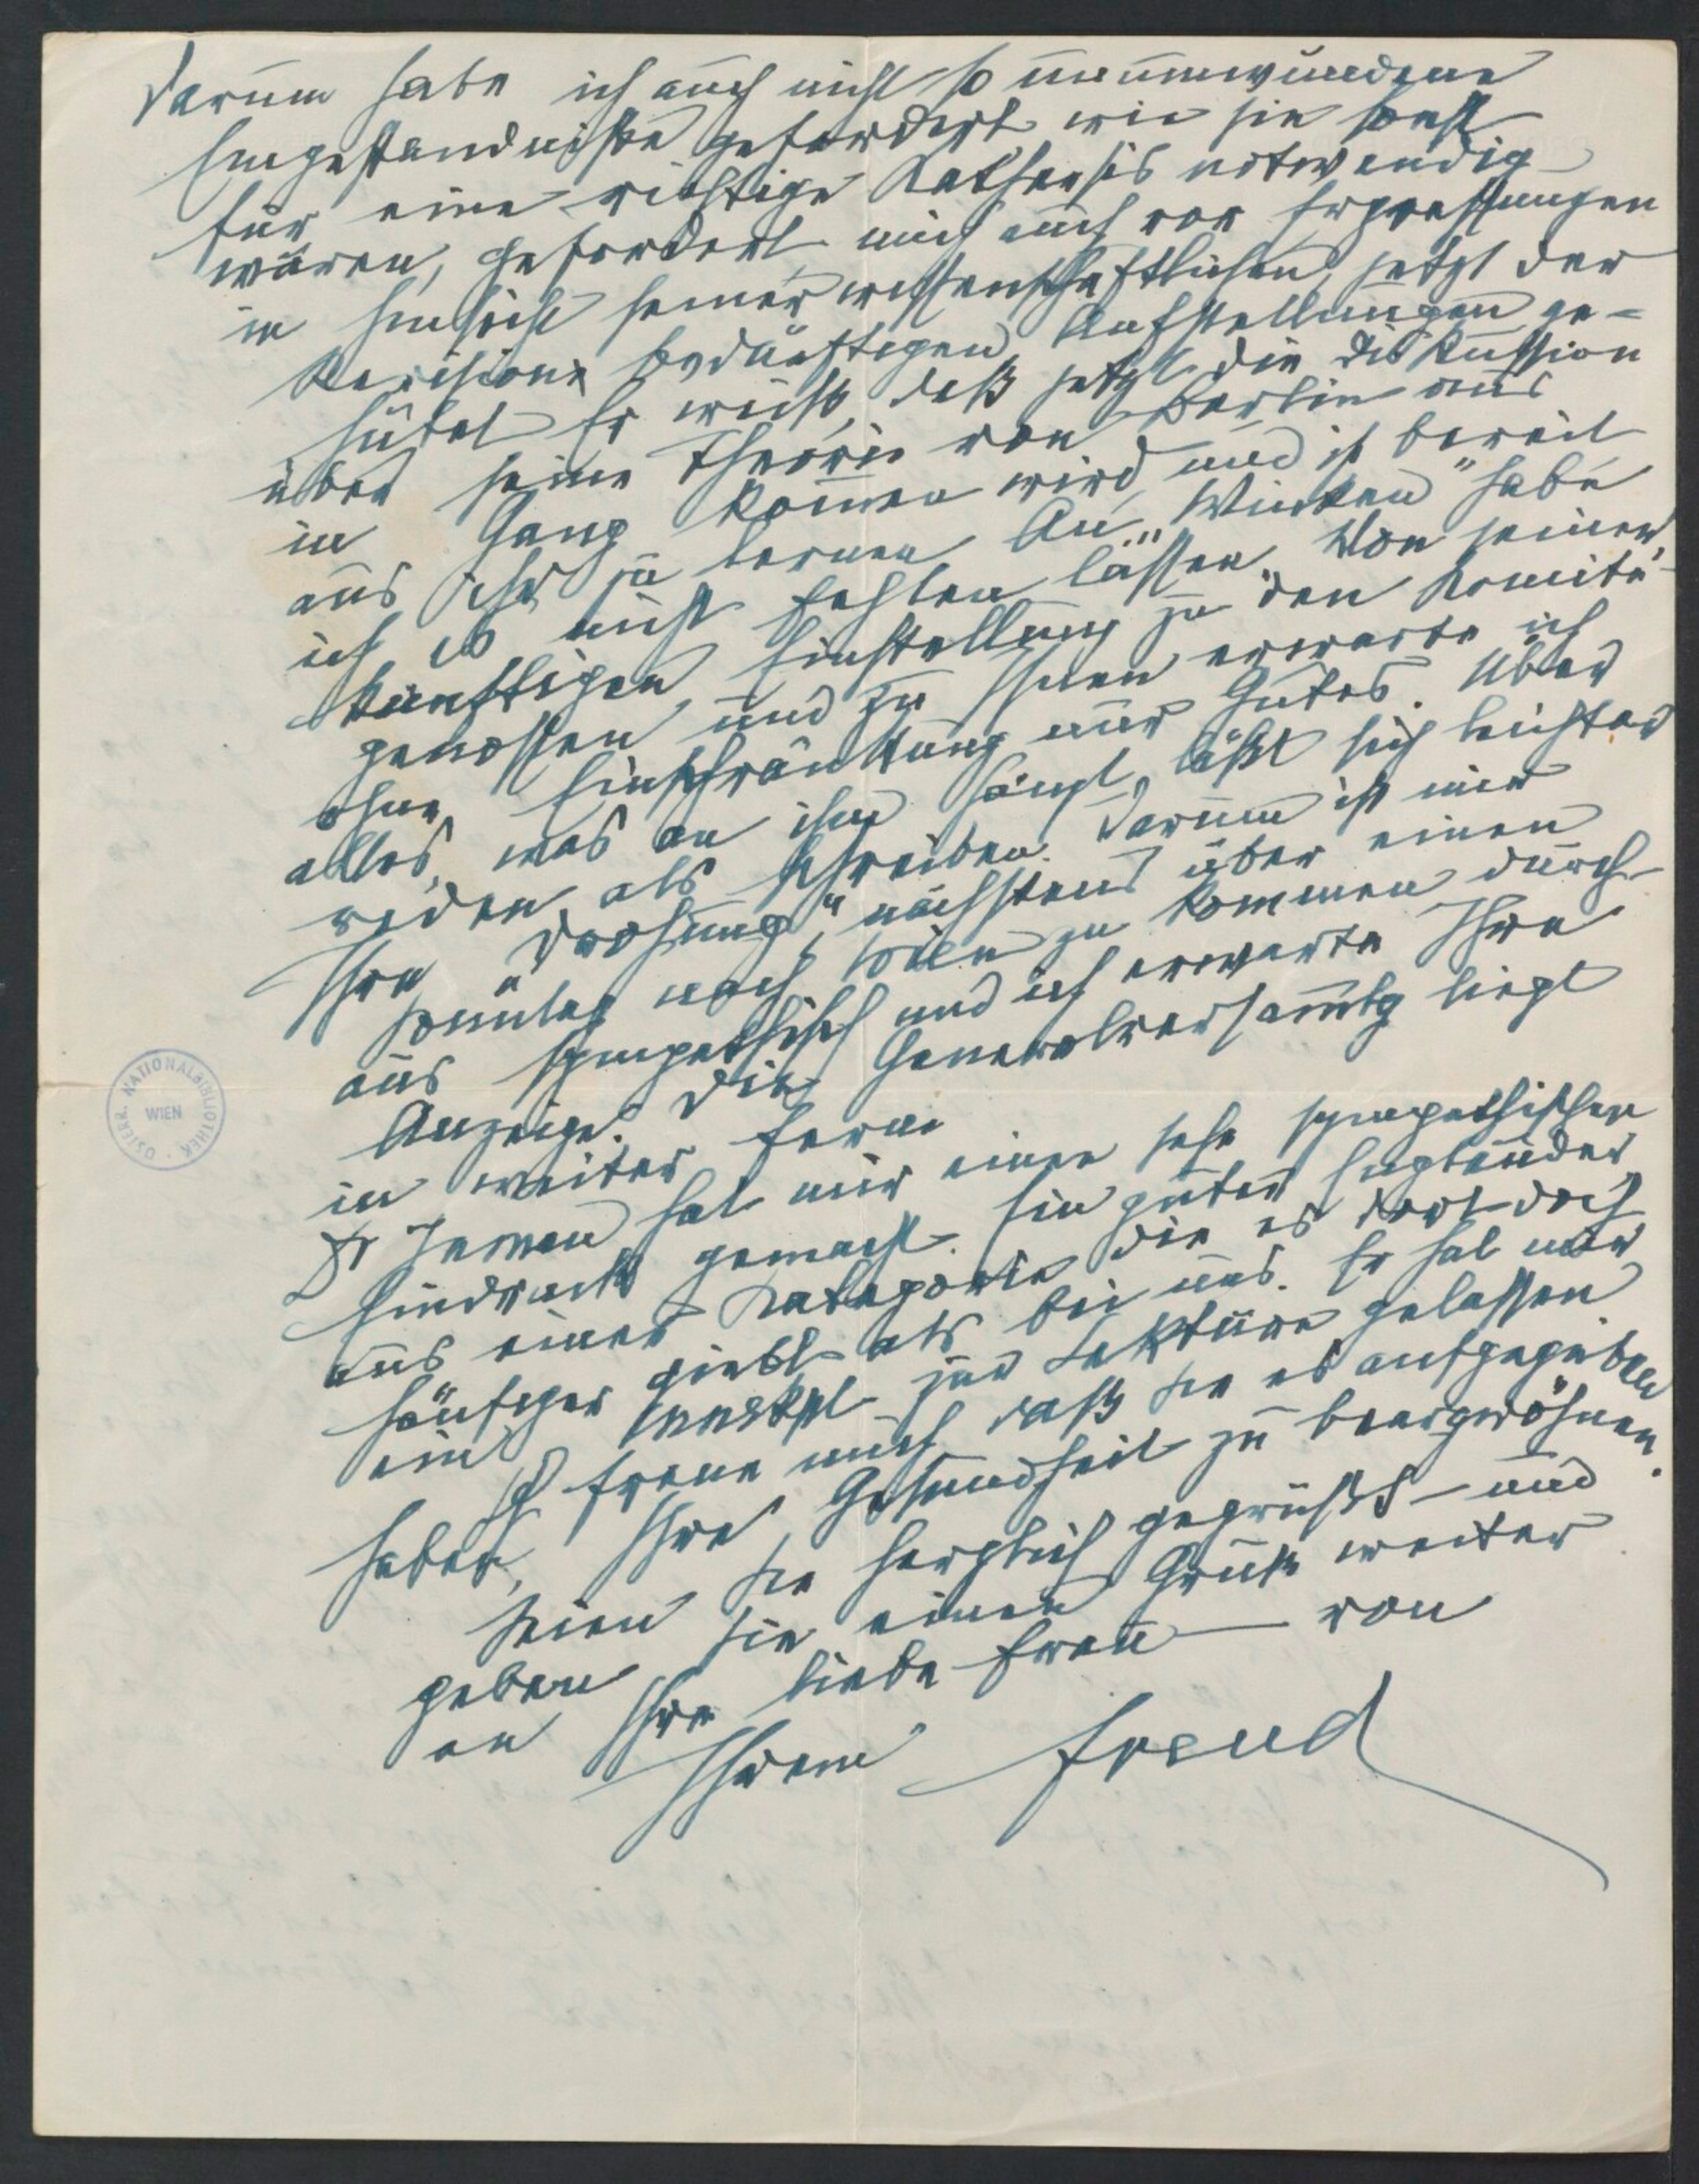 Darum habe ich auch nicht so unumwundene
Eingeständniße gefordert wie sie sonst
für eine richtige Kathersis notwendig
wären, gefordert mich auch vor Erpressungen
in Hinsicht seiner wissenschaftlichen, jetzt der
Revision bedürftigen Aufstellungen ge-
hütet Er weiß, daß jetzt die Diskussion
über seine Theorie von Berlin aus
in Gang kommen wird und ist bereit
aus ihr zu lernen An „Winken" habe
ich es nicht fehlen lassen. Von seiner
künftigen Einstellung zu den Komité-
genossen und zu Ihnen erwarte ich
ohne Einschränkung nur Gutes. Über
alles, was an ihm hängt, läßt sich leichter
reden als schreiben. Darum ist mir
Ihre „Drohung", nächstens über einen
Sonntag nach Wien zu kommen durch-
aus sympathisch und ich erwarte Ihre
Anzeige. Die Generalversammlg liegt
in weiter Ferne
Dr Inman hat mir einen sehr sympathischen
Eindruck gemacht. Ein guter Engländer
aus einer Kategorie die es dort doch
häufiger giebt als bei uns. Er hat mir
ein Mnskpt zur Lektüre gelassen
Ich freue mich daß Sie es aufgegeben
haben, Ihre Gesundheit zu beargwöhnen.
Seien Sie herzlich gegrüßt – und
geben Sie einen Gruß weiter
an Ihre liebe Frau – von
Ihrem Freud
ÖSTERR. NATIONALBIBLIOTHEK
WIEN